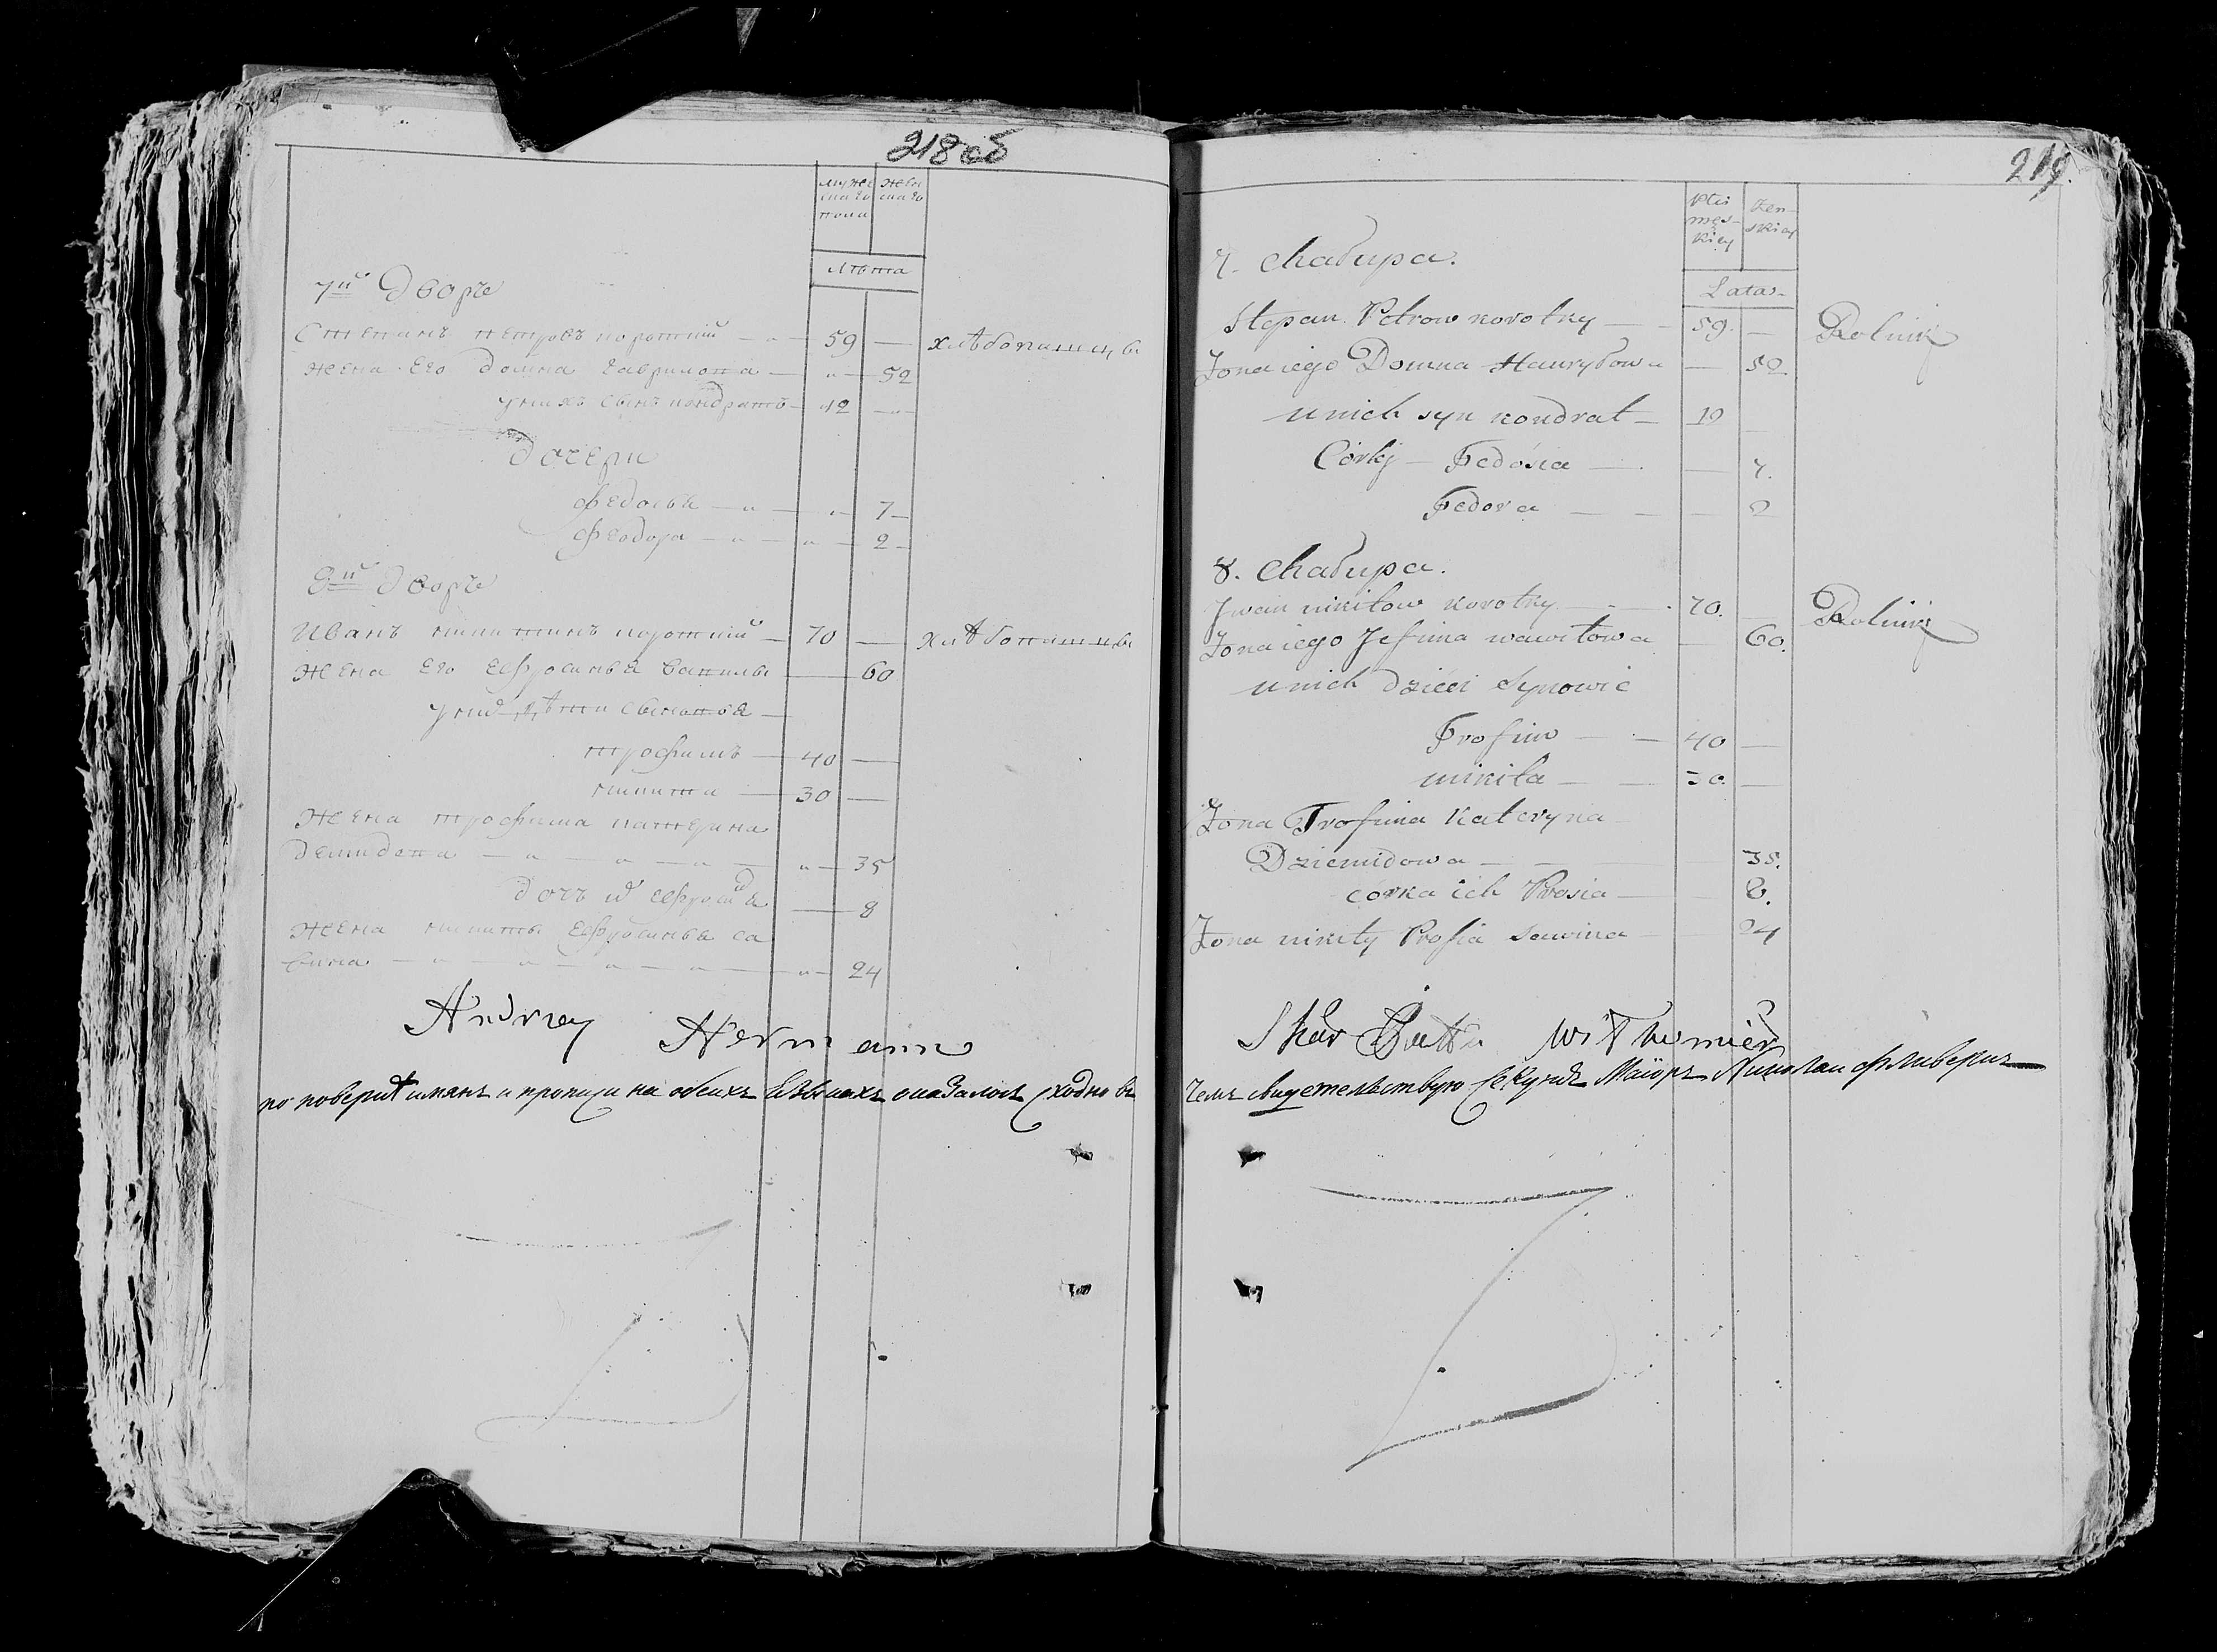 218 об
мужеска го пола
женска го
Лѣта
7й Дворъ
Степанъ петровъ короткий 59 — хлѣбопашцы
жена его домна гаврилова — 52
у нихъ сынъ кондратъ 12 —
дочери
федосья — 7
феодора — 2
8й дворъ
Иванъ никитинъ короткий 70 — хлѣбопашцы
жена его ефросинья — 60
у них дѣти сыновья
трофимъ 40 —
никита 30 —
жена трофима катерина
демидова — 35
дочь их ефросинья — 8
жена никиты ефросинья са
вина — 24
Andrzey Hermann
по поверке имянъ и прописи на обеихъ языкахъ оказалось сходно въ
219.
Płci męs-kiey
Żen-skiey
Lata
7. Chałupa.
Stepan Petrow korotky — 59. — Rolnik
Żona iego Domna Hawryłowa — 52.
u nich syn kondrat — 12
Córki — Fedósia — 7.
Fedora — 2
8. Chałupa.
Jwan nikitow korotky — 70. Rolnik
Żona iego Jefima wawiłowa — 60.
u nich dzieci synowie
Trofim — 40 —
nikita — 30. —
Żona Trofima Kateryna
Dziemidowa — 35.
corka ich Prosia — 8.
Żona nikity Prosia sawina 24
чемъ свидетельствую Секундъ Маіоръ Николаи